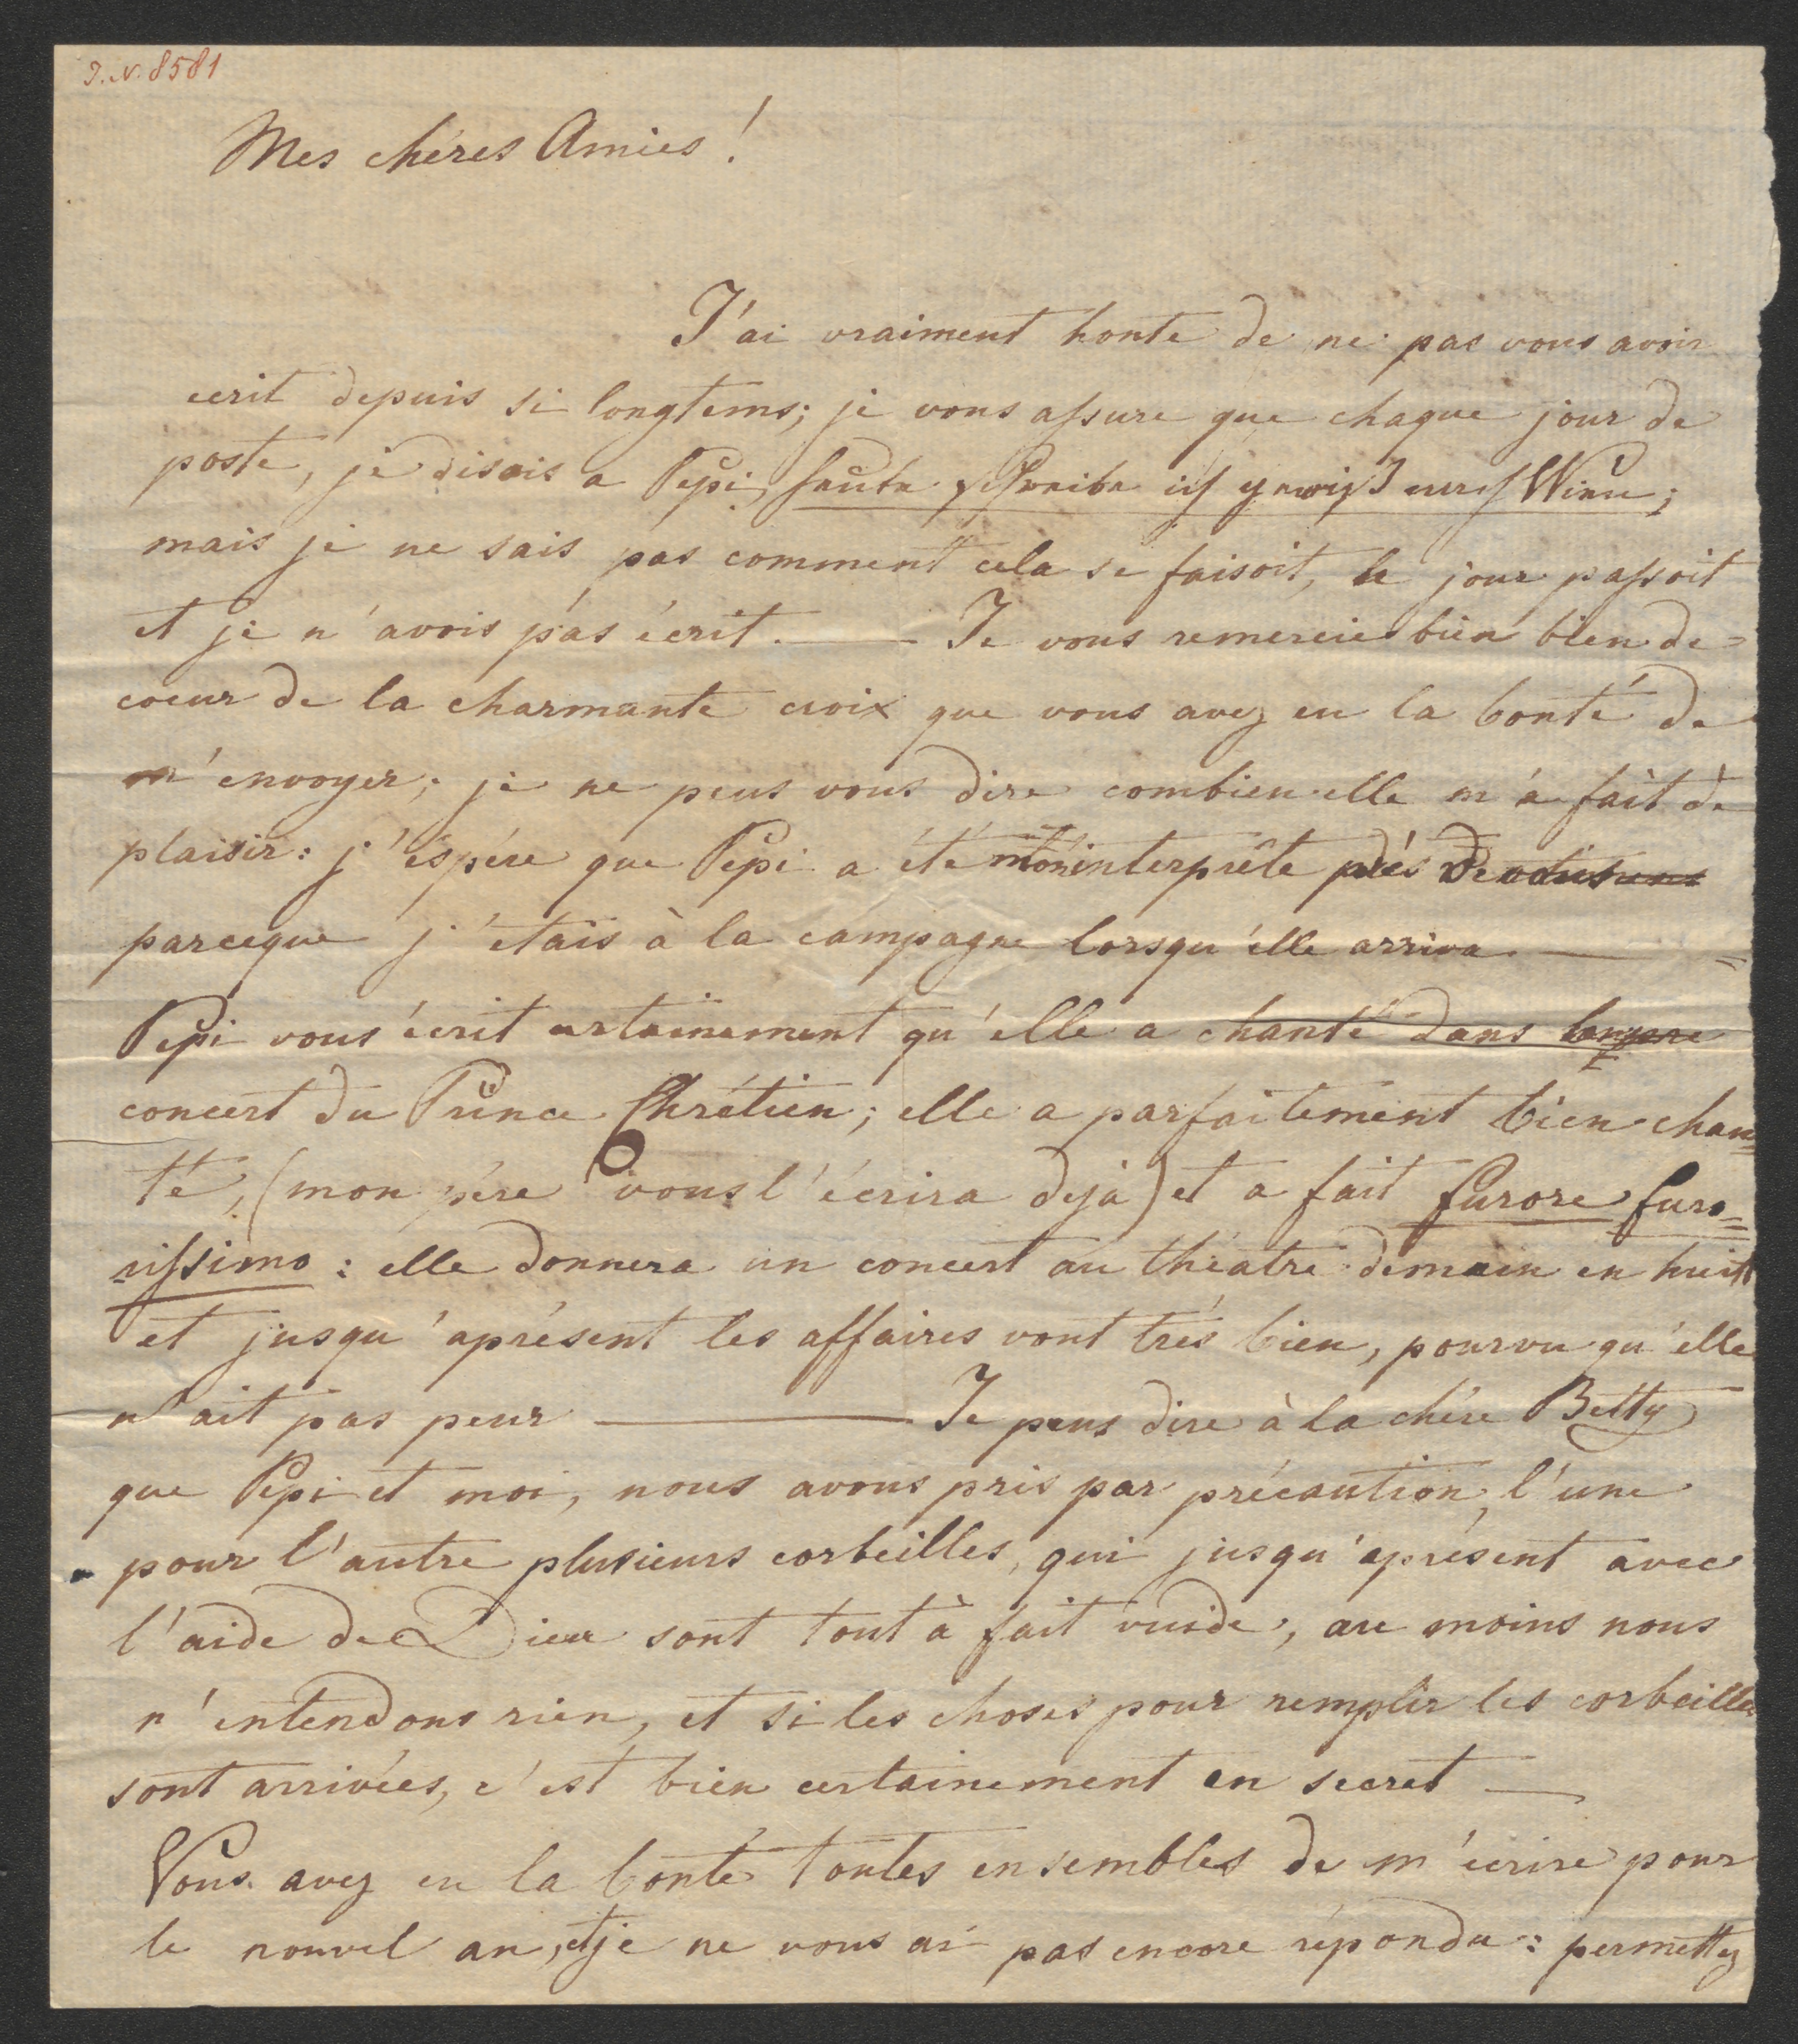 J.N. 8581
Mes chéres Amies!
J'ai vraiment honte de ne pas vous avoir
ecrit depuis si longtems; je vous assure que chaque jour de
poste, je disois a Pepi, heute schreibe ich gewiß nach Wien;
mais je ne sais pas comment cela se faisoit, le jour passoit
et je n'avois pas écrit. — Je vous remercie bien bien de
coeur de la charmante croix que vous avez eu la bonté de
m'envoyer; je ne peus vous dire combien elle m'a fait de
plaisir: j'éspére que Pepi a été mon interprête prés de vous
parceque j'étais à la campagne lorsqu'elle arriva. —
Pepi vous écrit certainement qu'elle a chanté dans
concert du Prince Chrétien; elle a parfaitement bien chan=
té, (mon pére vous l'écrira dejà) et a fait furore furo=
rissimo: elle donnera un concert au théatre demain en huit
et jusqu'aprésent les affaires vont trés bien, pourvu qu'elle
n'ait pas peur — Je peus dire à la chére Betty
que Pepi et moi, nous avons pris par précaution, l'une
pour l'autre plusieurs corbeilles, qui jusqu'aprésent avec
l'aide de Dieu sont tout à fait vuide, au moins nous
n'entendons rien, et si les choses pour remplir les corbeilles
sont arrivées, c'est bien certainement en secret —
Vous avez eu la bonté toutes ensembles de m'écrire pour
le nouvel an, et je ne vous ai pas encore répondu: permettez